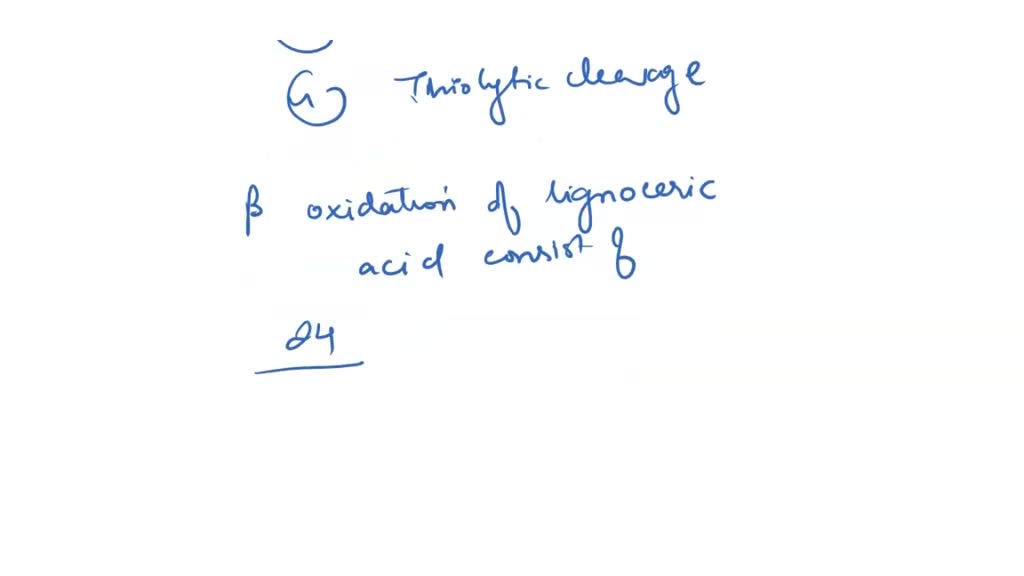 4 Thiolytic cleavage
β oxidation of lignoceric
acid consist of
24